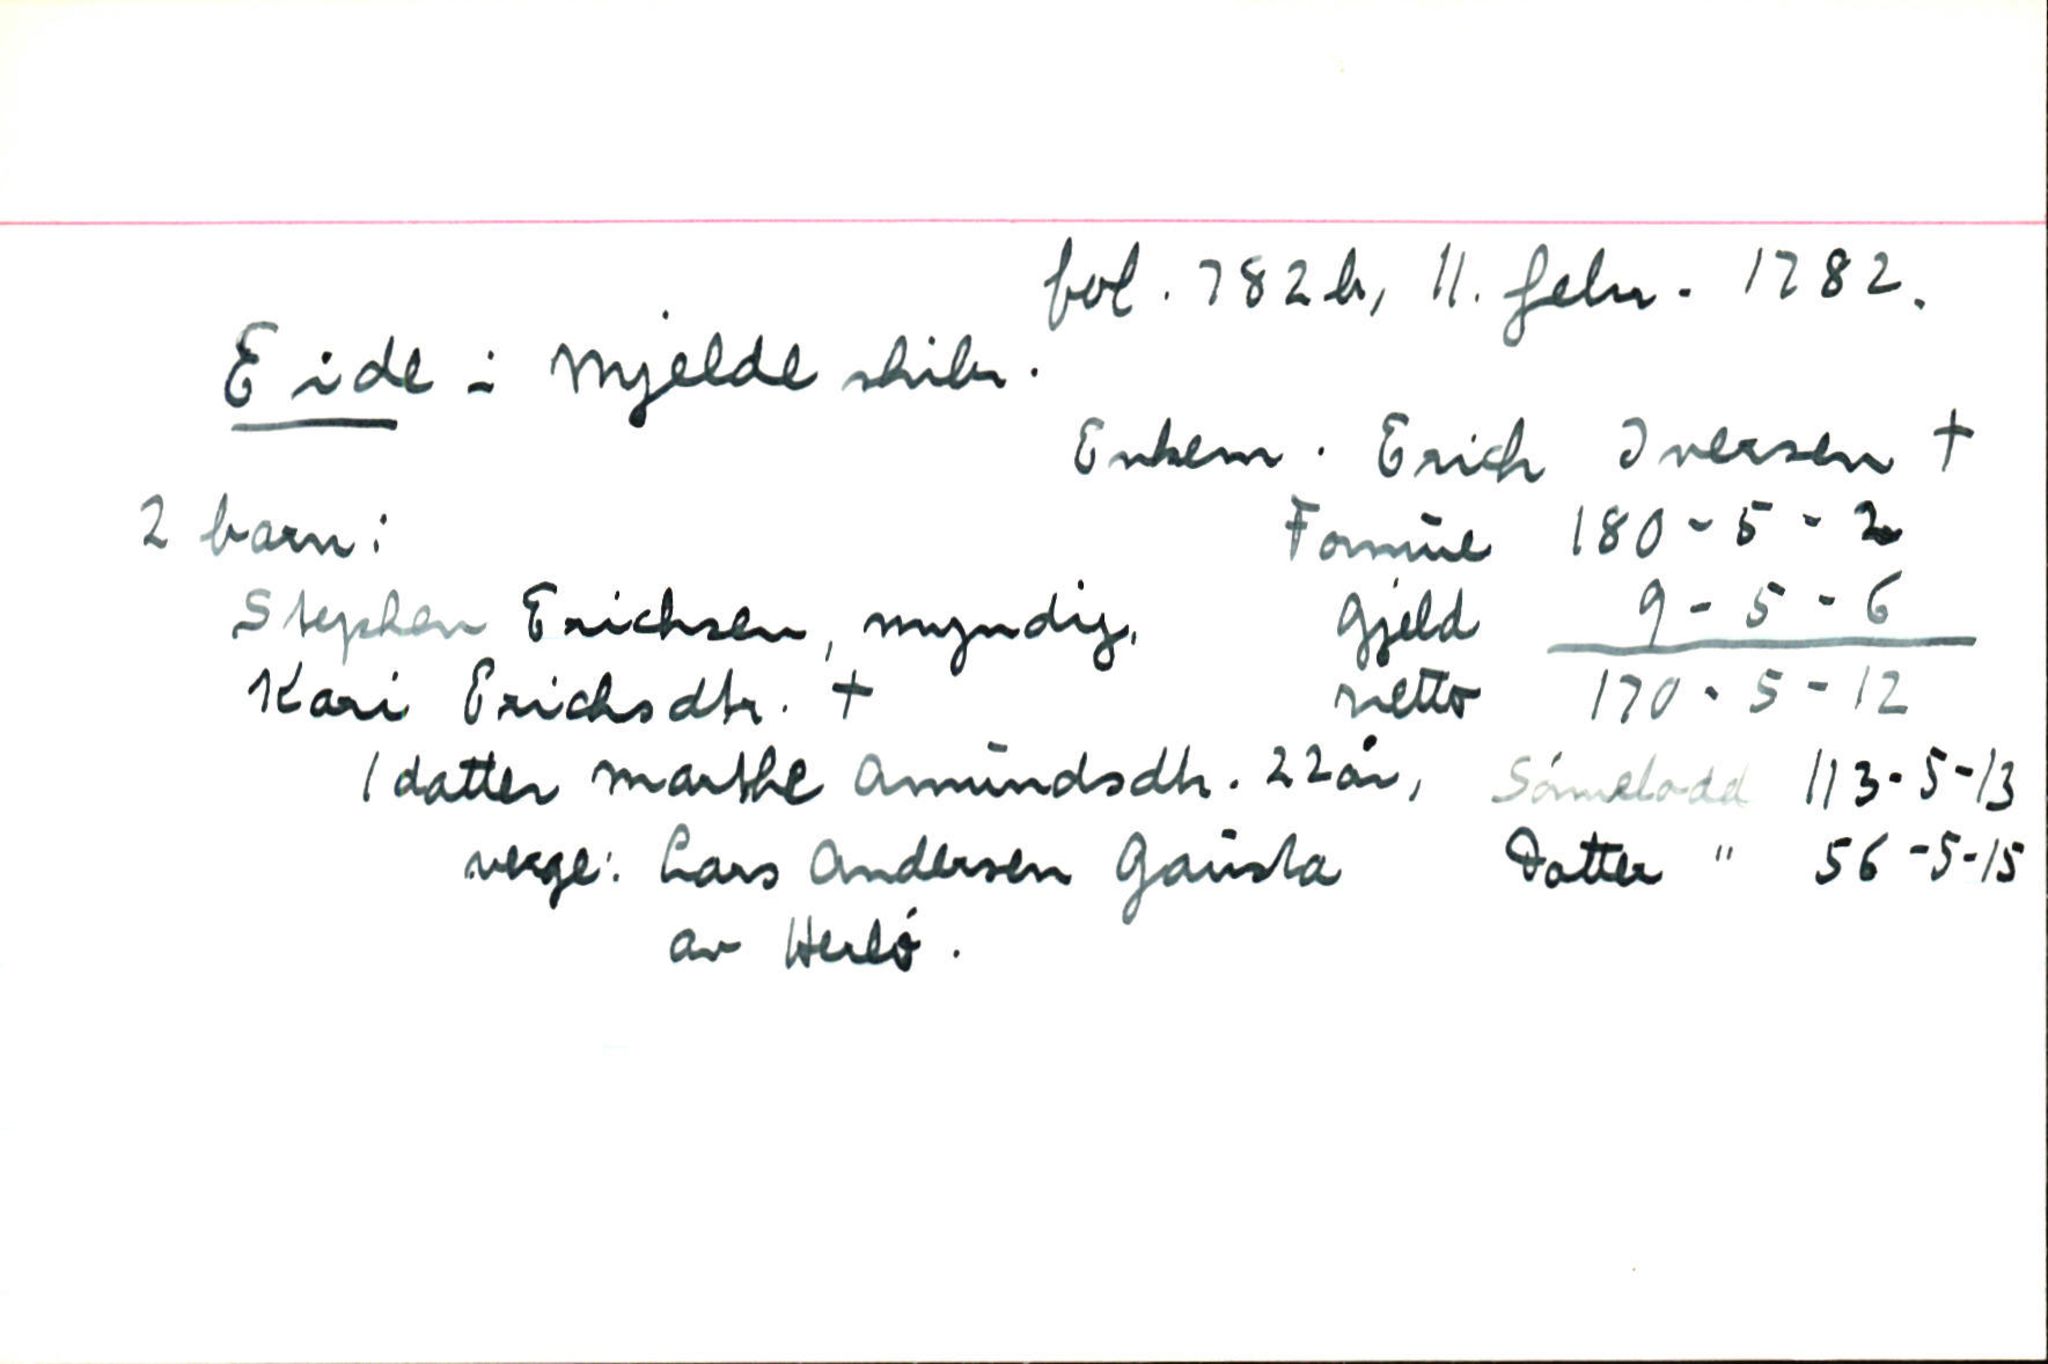 fol. 782b, 11. febr. 1782.
Eide i Mjelde skibr.
Enkem. Erich Iversen +
2 barn: Formue 180-5-2
Stephen Erichsen, myndig, Gjeld 9-5-6
Kari Erichsdtr. + netto 170-5-12
1 datter Marthe Amundsdtr. 22 år, Sønnelodd 113-5-13
verge: Lars Andersen Gausta Datter " 56-5-15
av Herlø.